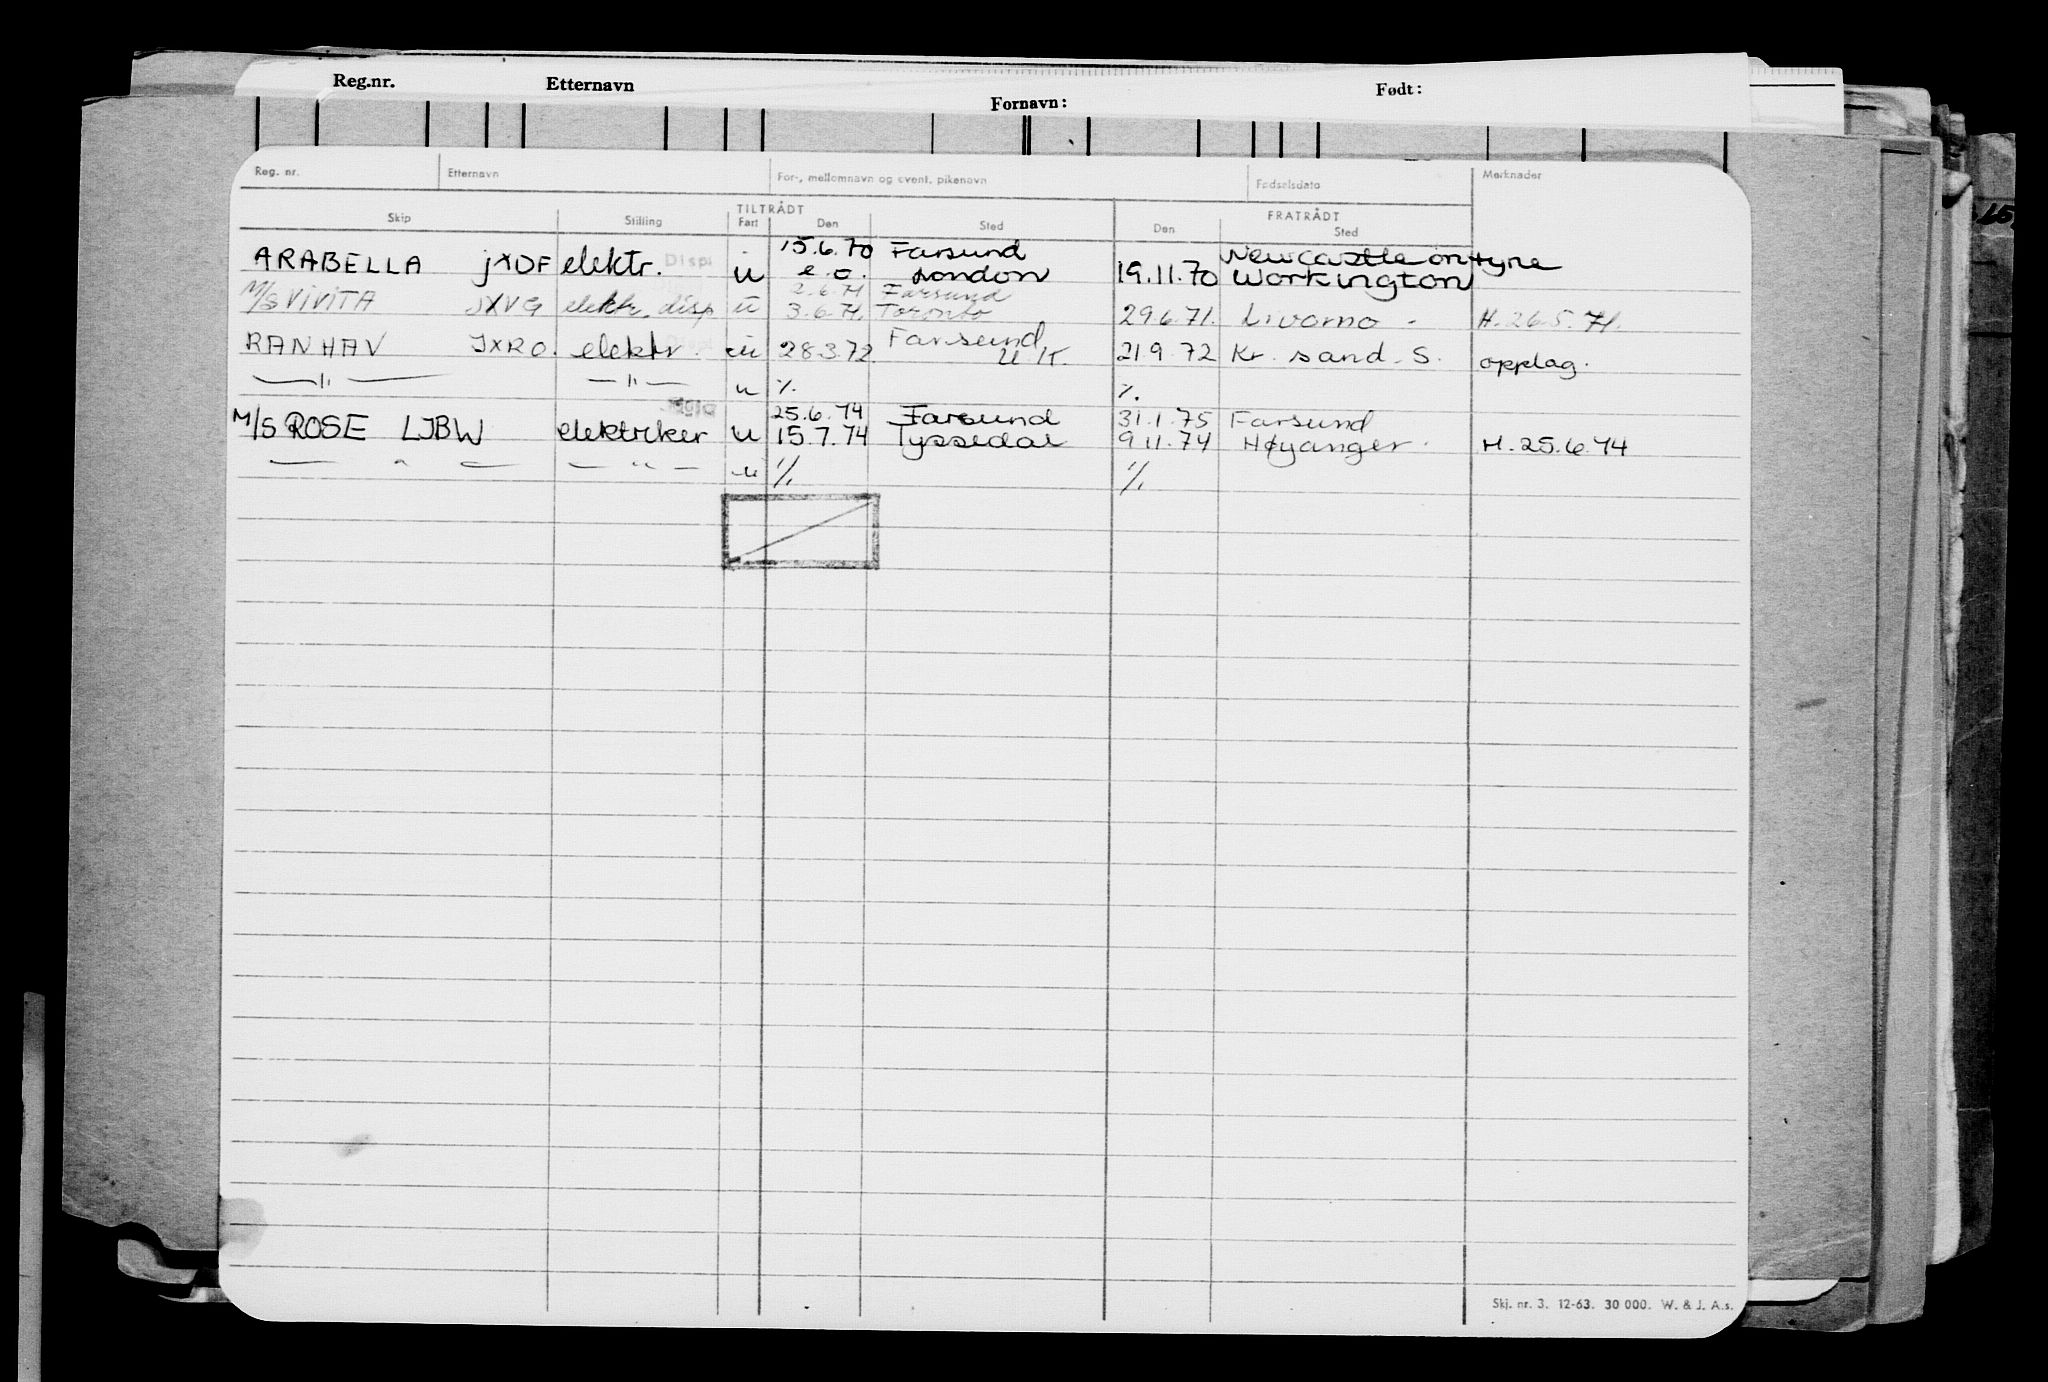 Reg.nr. Etternavn Fornavn: Født:
Reg. nr. Etternavn For-, mellomnavn og event. pikenavn Fødselsdato Merknader
TILTRÅDT FRATRÅDT
Skip Stilling Fart Den Sted Den Sted
15.6.70 Farsund Newcastle on tyne
ARABELLA JXDF elektr. Disp. u e.o. London 19.11.70 Workington
2.6.71 Farsund
M/S VIVITA JXVG elektr. disp u 3.6.71. Toronto 29.6.71. Livorno - H. 26.5.71.
Farsund
RANHAV JXRO. elektr. u 28.3.72 U.K. 21.9.72 Kr. sand. S. opplag.
—"— —"— u %. %.
25.6.74 Farsund 31.1.75 Farsund
M/S ROSE LJBW elektriker u 15.7.74 Tyssedal 9.11.74 Høyanger. H. 25.6.74
— " — — " — u %. %.
Skj. nr. 3. 12-63. 30 000. W. & J. A.s.